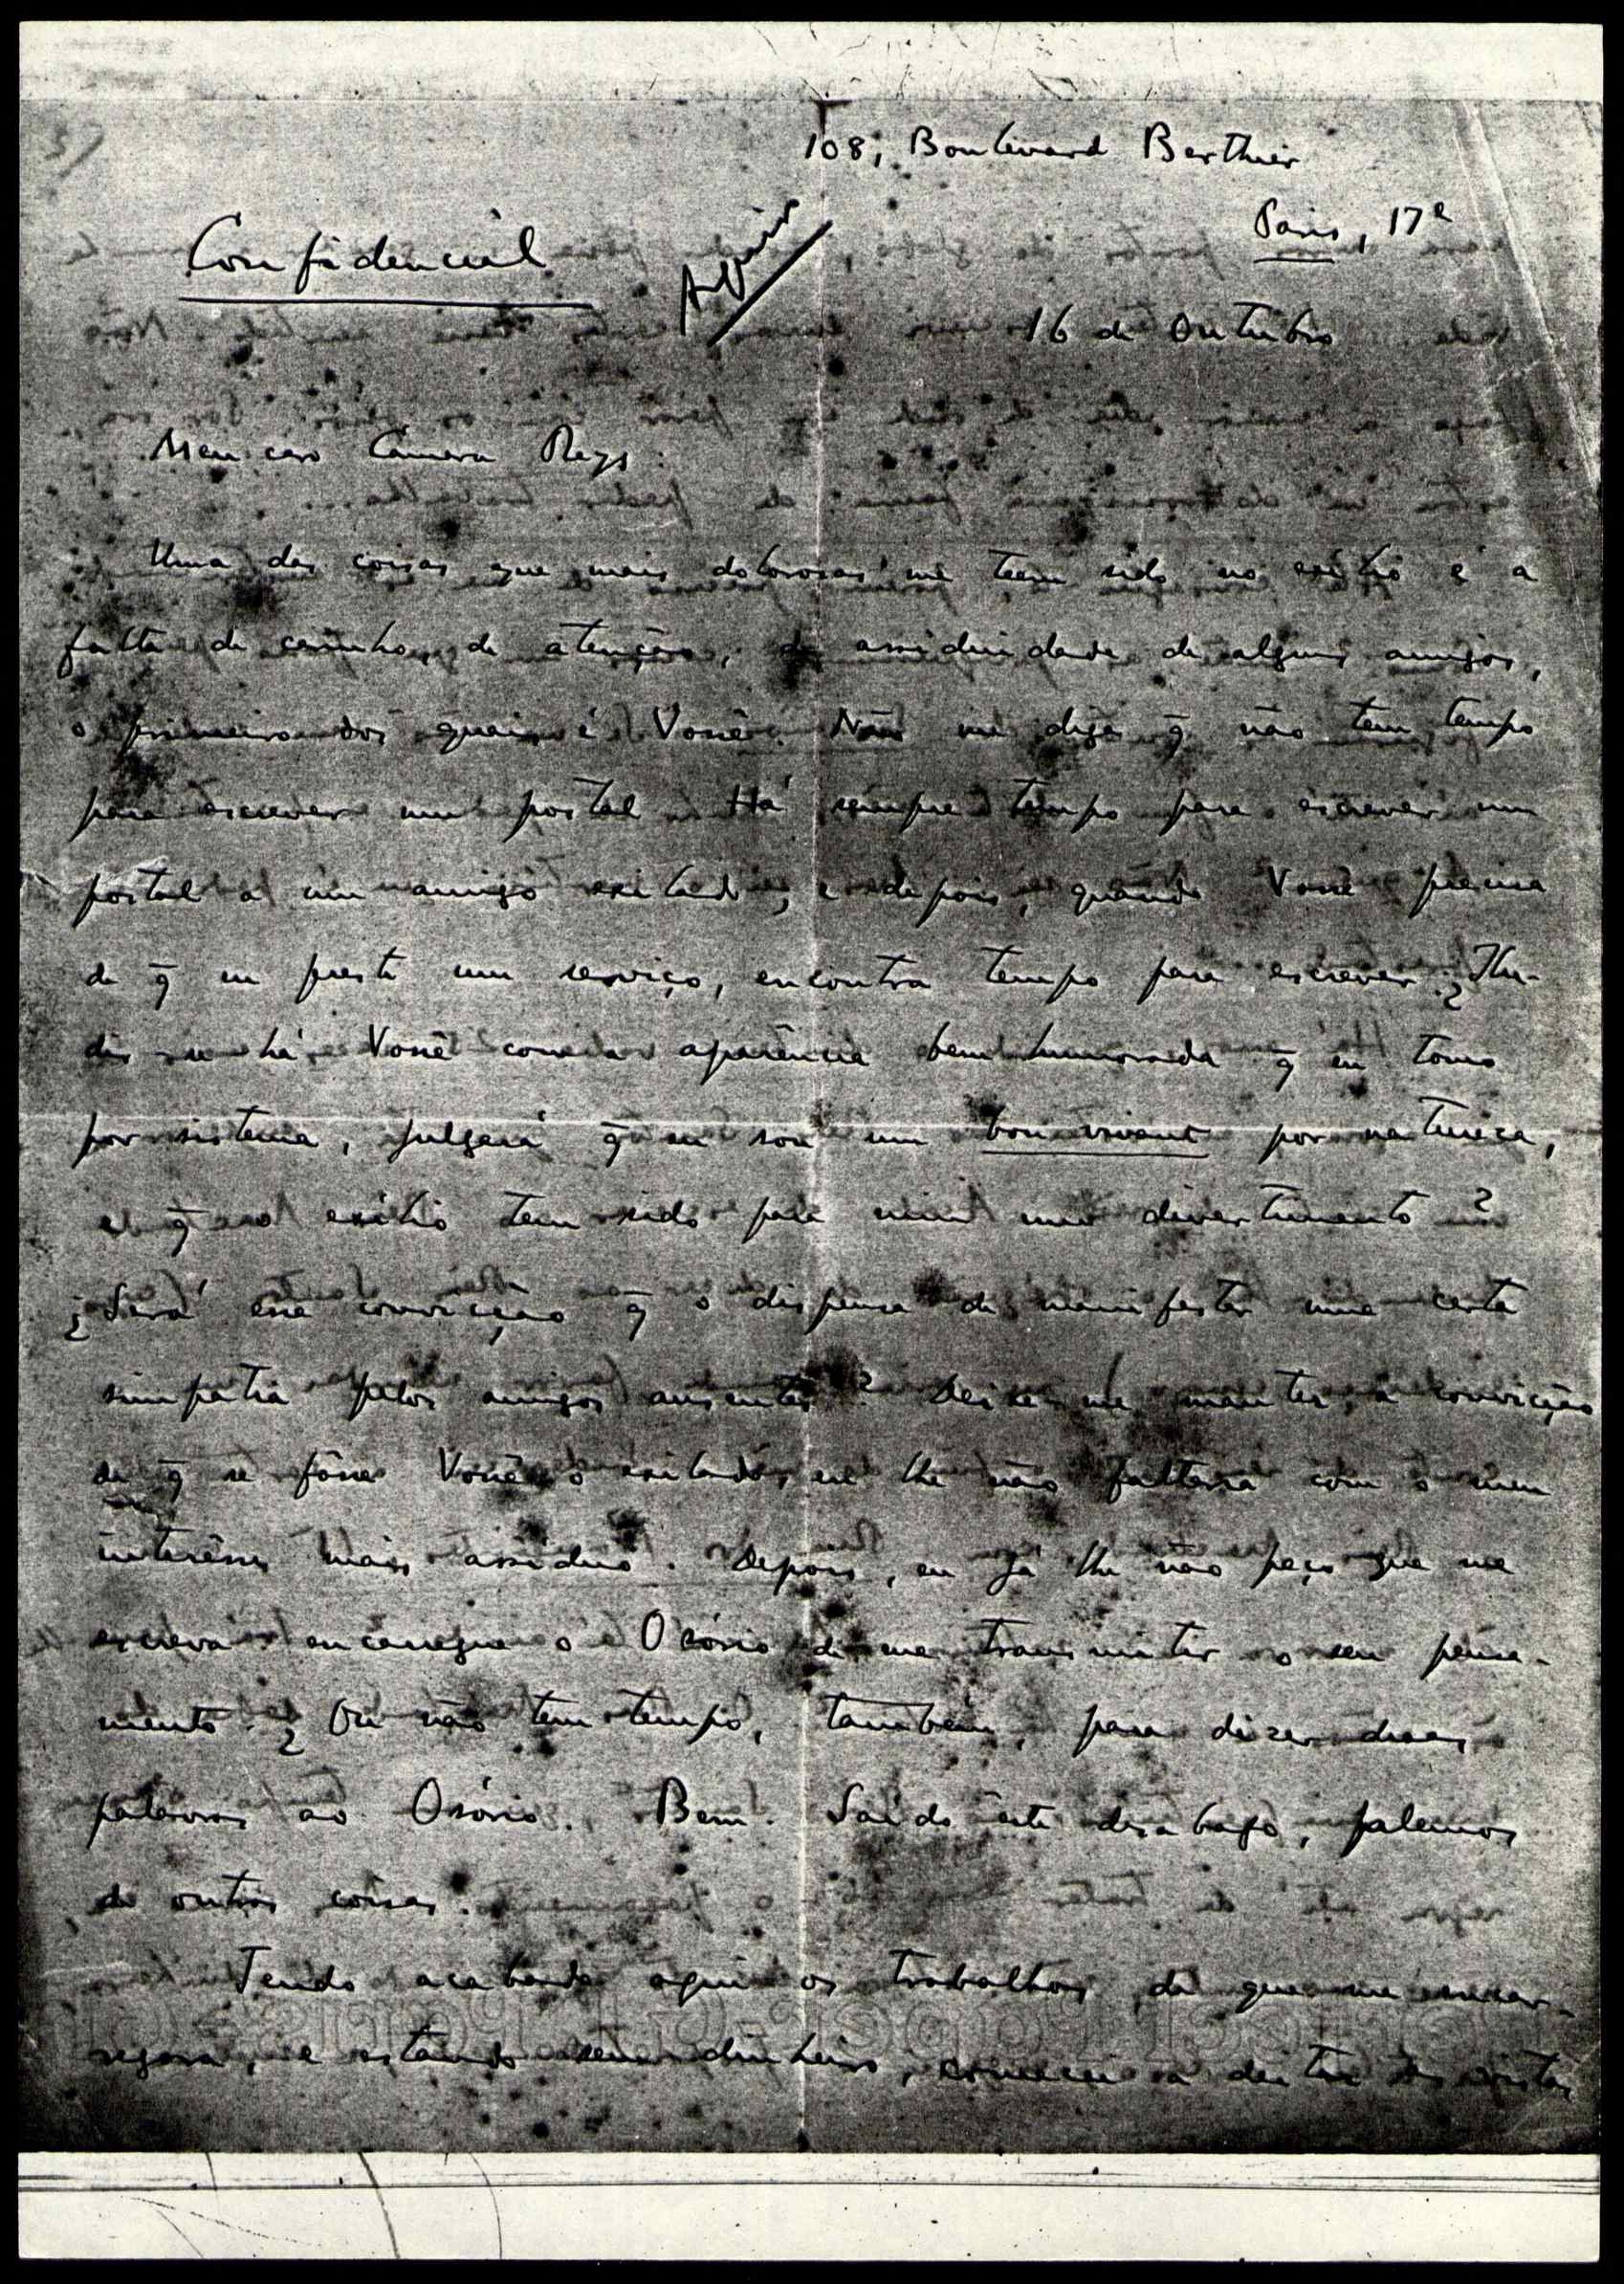 108, Boulevard Berthier
Paris, 17e
Confidencial
16 de Outubro
Meu caro Câmara Reys:
Uma das coisas que mais dolorosas me teem sido no exílio é a
falta de carinho, de atenção, de assiduidade de alguns amigos,
o primeiro dos quais é Você. Não me diga q̄ não tem tempo
para escrever um postal. Há sempre tempo para escrever um
postal a um amigo exilado; e depois, quando Você precisa
de q̄ eu preste um serviço, encontra tempo para escrever. ¿Ilu-
dir-se-há Você com a aparência bem humorada q̄ eu tomo
por sistema, julgará q̄ eu sou um bon vivant por natureza,
e q̄ o exílio tem sido para mim um divertimento?
¿Será essa convicção q̄ o dispensa de manifestar uma certa
simpatia pelos amigos ausentes? Deixe-me manter a convicção
de q̄ se fôsse Você o exilado, eu lhe não faltaria com o meu
interêsse mais assíduo. Depois, eu já lhe não peço que me
escreva: encarregue o Osório de me transmitir o seu pensa-
mento. ¿Ou não tem tempo, também, para dizer duas
palavras ao Osório. Bem. Saído êste desabafo, falemos
de outras coisas.
Tendo acabado aqui os trabalhos de que me encar-
regara, e estando sem dinheiro, comecei a deitar as vistas